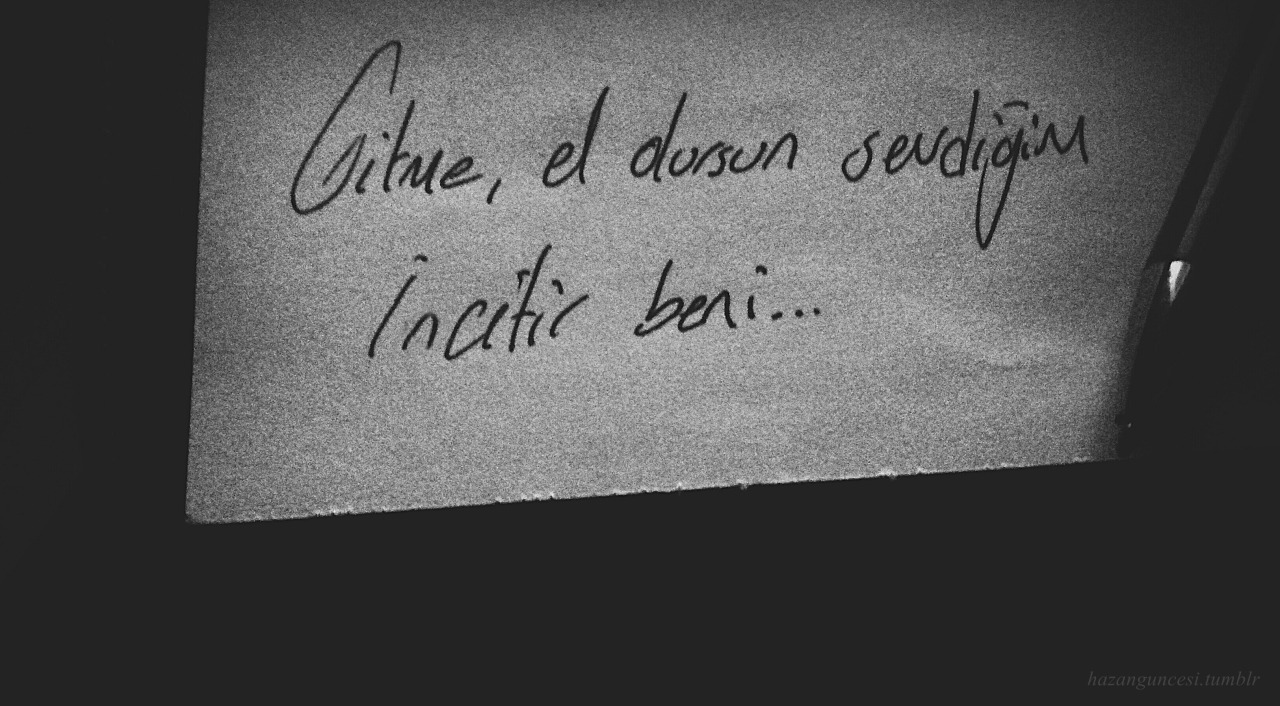 Gitme, el dursun sevdiğim
İncitir beni...
hazanguncesi.tumblr